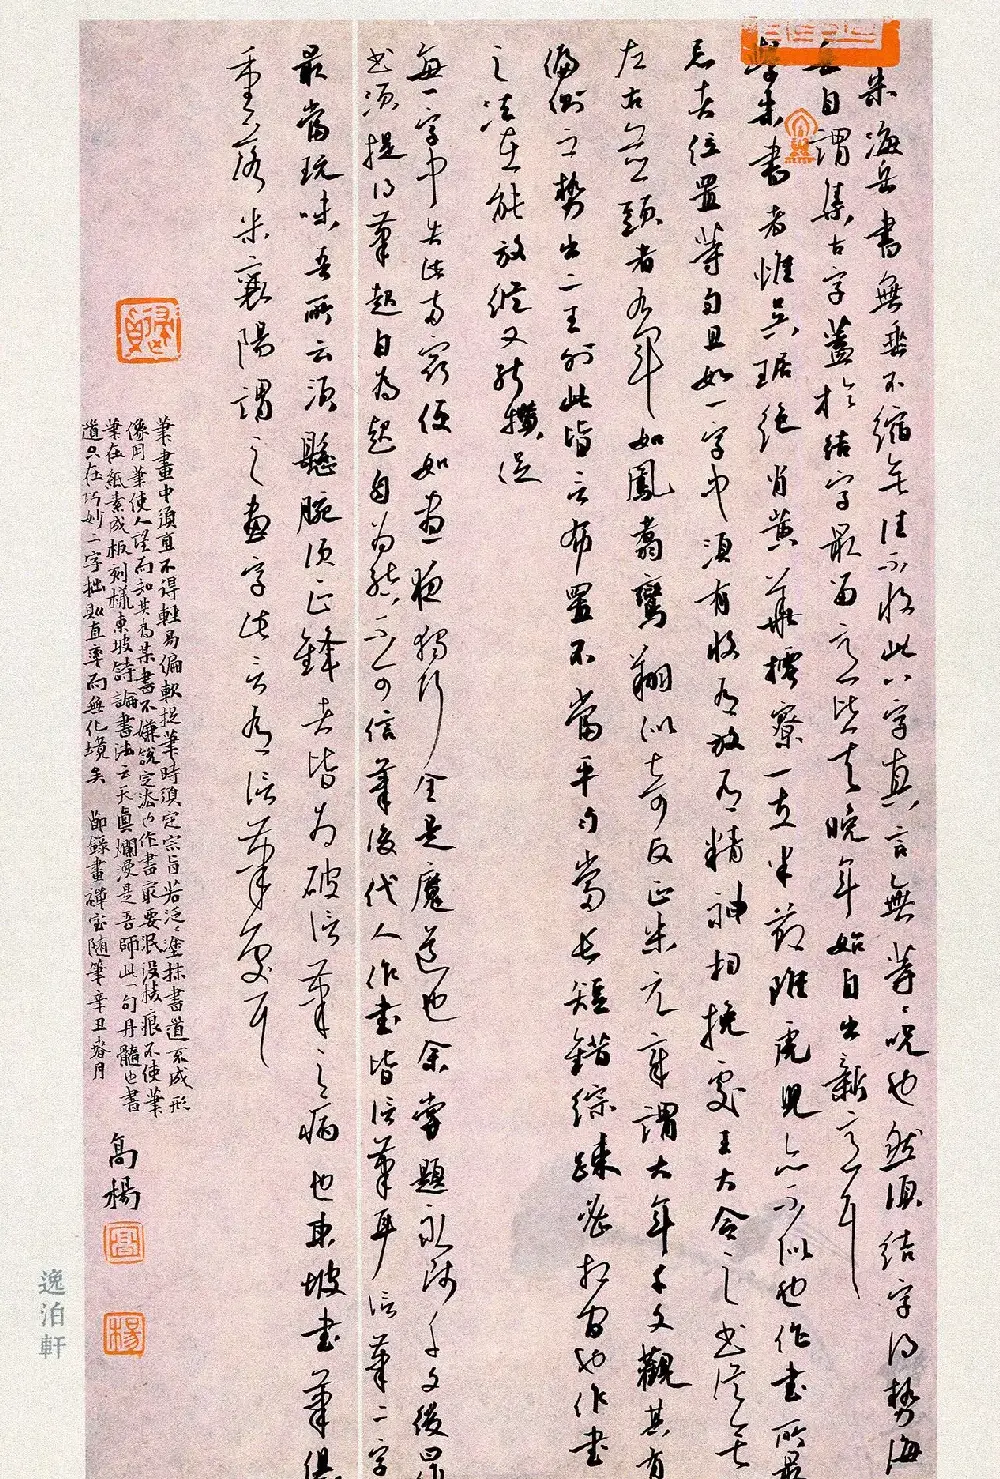 米海岳書無垂不縮無往不收此八字真言無等〻呪也然須結字得勢海
自謂集古字蓋於結字最留意比其晚年始自出新意耳
學米書者惟吳琚絕肖黃華樗寮一支半節雖虎兒亦不似也作書所最
忌者位置等勻且如一字中須有收有放有精神相挽處王大令之書從無
左右並頭者右軍如鳳翥鸞翔似奇反正米元章謂大年千文觀其有
偏側之勢出二王外此皆言布置不當平勻當長短錯綜疎密相間也作書
之法在能放縱又能攢促
每一字中失此兩竅便如晝夜獨行全是魔道也余嘗題永師千文後曰作
書須提得筆起自為起自為結不可信筆後代人作書皆信筆耳信筆二字
最當玩味吾所云須懸腕須正鋒者皆為破信筆之病也東坡書筆俱
重落米襄陽謂之畫字此言有信筆處耳
筆畫中須直不得輕易偏軟捉筆時須定宗旨若泛〻塗抹書道不成形
像用筆使人望而知其為某書不嫌說定法也作書最要泯沒稜痕不使筆
筆在紙素成板刻樣東坡詩論書法云天真爛漫是吾師此一句丹髓也書
道只在巧妙二字拙則直率而無化境矣 節錄畫禪室隨筆辛丑春月
高楊
高
楊
逸泊軒